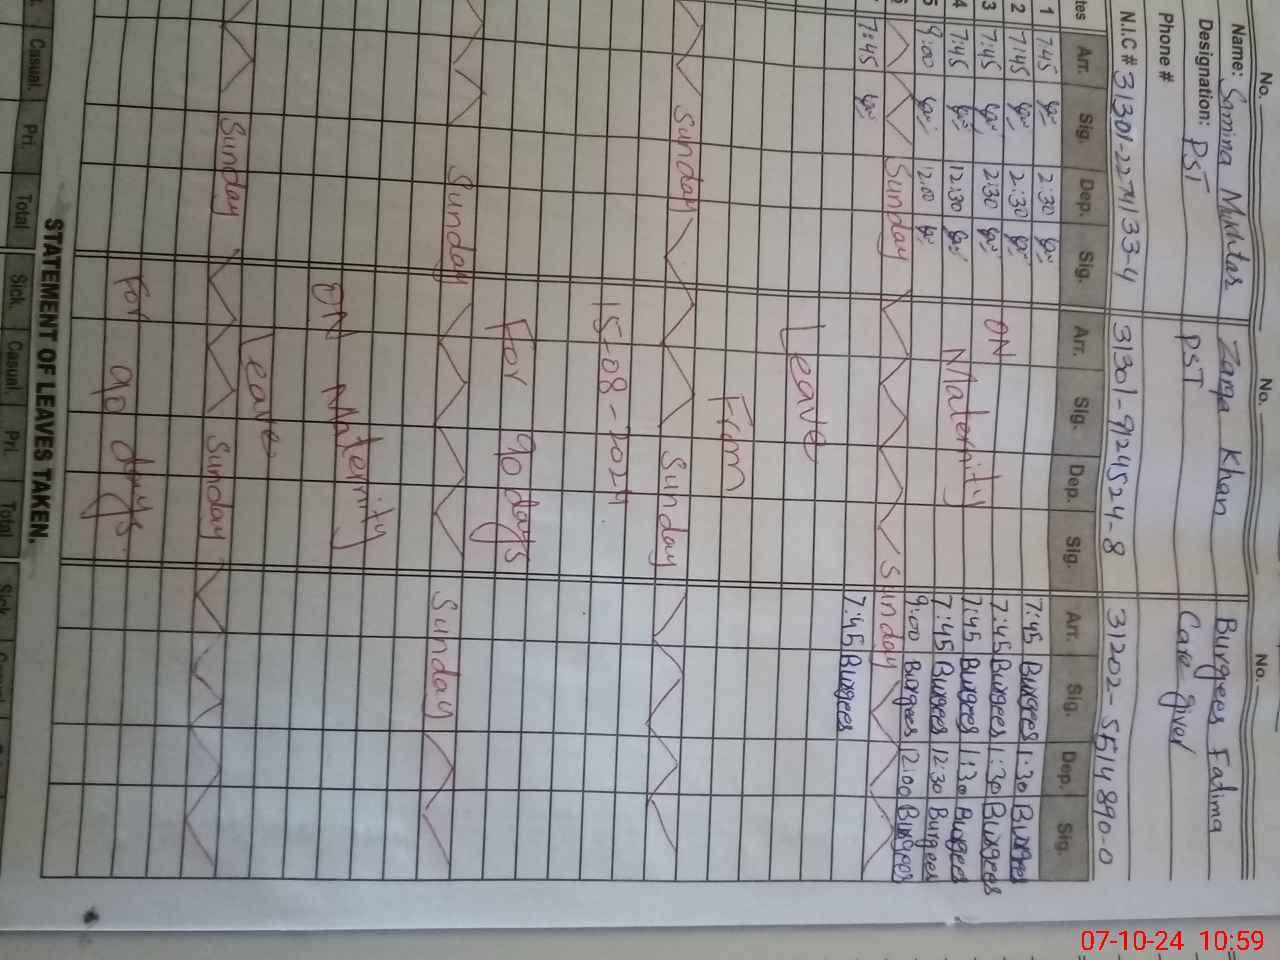 No. No. No.
Name: Samina Mukhtar Zarqa Khan Burgees Fatima
Designation: PST PST Care giver
Phone #
N.I.C # 31301-2274133-4 31301-9124524-8 31202-5514890-0
tes Arr. Sig. Dep. Sig. Arr. Sig. Dep. Sig. Arr. Sig. Dep. Sig.
1 7:45 2:30 7:45 Burgees 1:30 Burgees
2 7:45 2:30 ON 7:45 Burgees 1:30 Burgees
3 7:45 2:30 Maternity 7:45 Burgees 1:30 Burgees
4 7:45 12:30 7:45 Burgees 12:30 Burgees
5 9:00 12:00 9:00 Burgees 12:00 Burgees
Sunday Sunday
7:45 7:45 Burgees
Leave
From
Sunday Sunday
15-08-2024
For 90 days
Sunday Sunday
ON Maternity
Leave
Sunday Sunday
For 90 days.
STATEMENT OF LEAVES TAKEN.
Casual. Pri. Total Sick. Casual. Pri. Total Sick
07-10-24 10:59